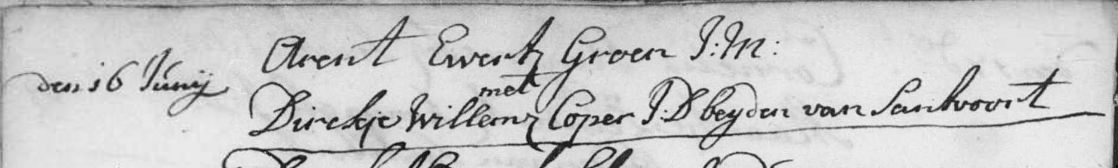 Arent Ewertz Groen J: M:
den 16 Junij
met
Dirckje Willemz Coper J: D beyden van Santvoort